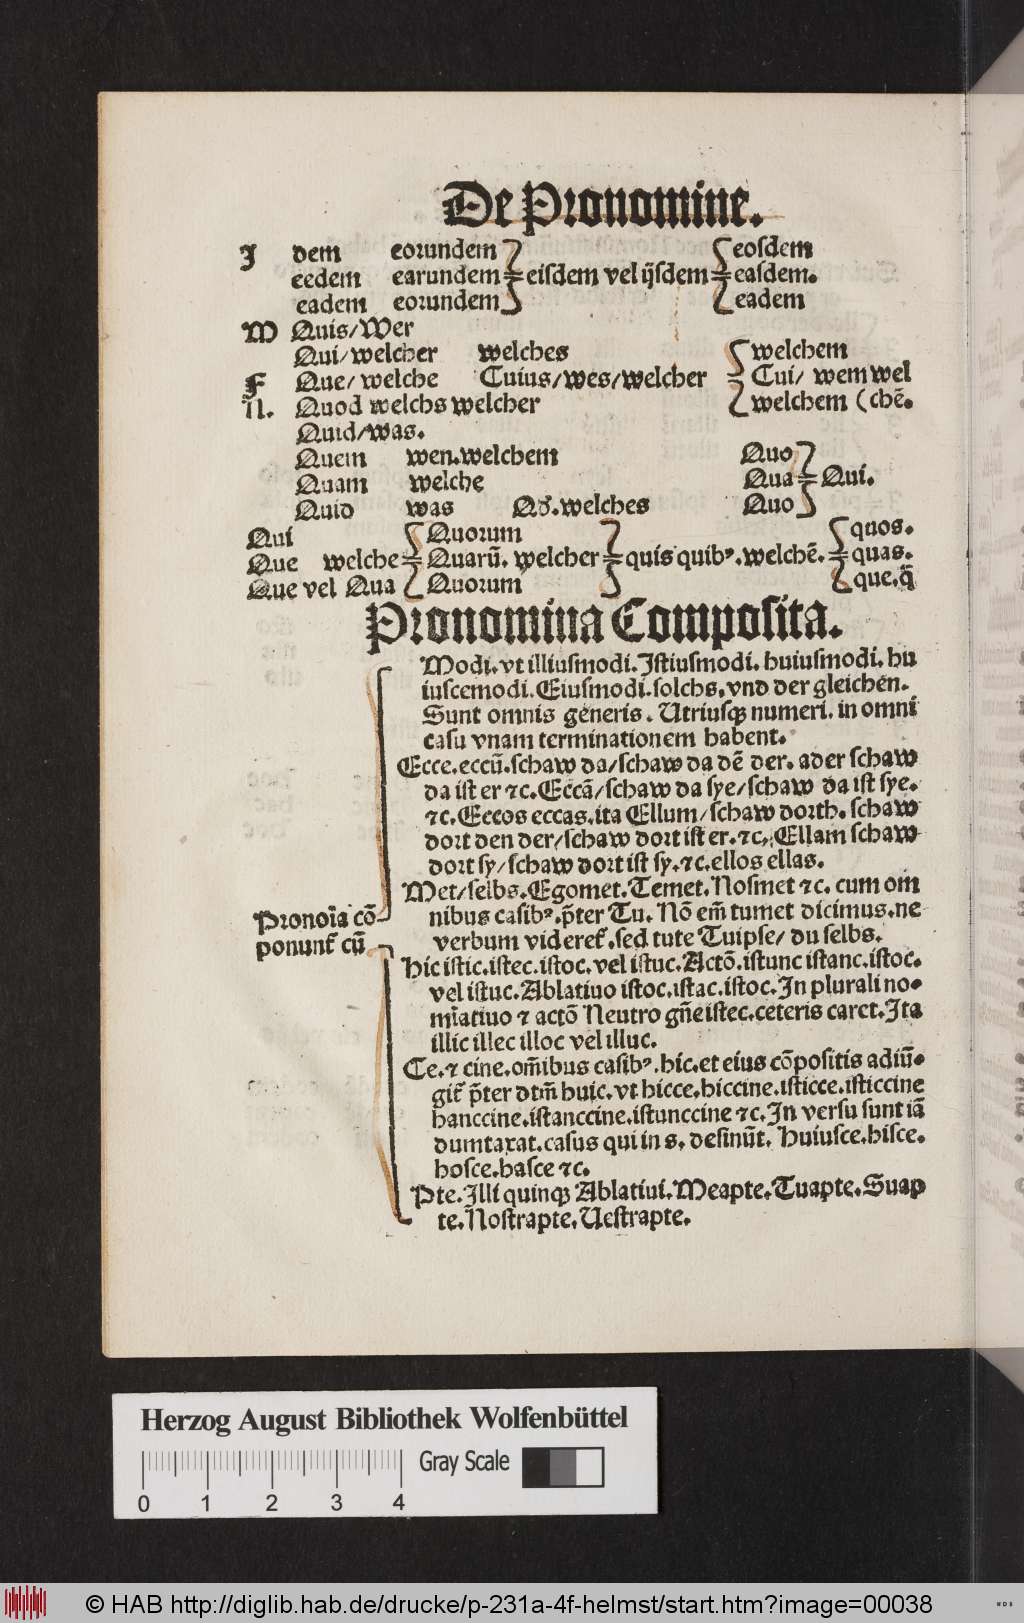 De Pronomine.
I dem eorundem eosdem
eedem earundem eisdem vel ijsdem easdem.
eadem eorundem eadem
M Quis/Wer
Qui/welcher welches welchem
F Que/ welche Cuius/wes/welcher Cui/ wem wel
N. Quod welchs welcher welchem (chē.
Quid/was.
Quem wen.welchem Quo
Quam welche Qua Qui.
Quid was Qd.welches Quo
Qui Quorum quos.
Que welche Quarū. welcher quis quibꝰ.welchē. quas.
Que vel Qua Quorum que.q̄
Pronomina Composita.
Modi.vt illiusmodi.Istiusmodi.huiusmodi.hu
iuscemodi.Eiusmodi.solchs.vnd der gleichen.
Sunt omnis generis. Utriusqꝫ numeri.in omni
casu vnam terminationem habent.
Ecce.eccū.schaw da/schaw da dē der.ader schaw
da ist er ⁊c.Eccā/schaw da sye/schaw da ist sye.
⁊c.Eccos eccas.ita Ellum/schaw dorth.schaw
dort den der/schaw dort ist er.⁊c.Ellam schaw
dort sy/schaw dort ist sy.⁊c.ellos ellas.
Met/selbs.Egomet.Temet.Nosmet ⁊c. cum om
Pronoīa cō- nibus casibꝰ.p̄ter Tu. Nō em̄ tumet dicimus.ne
ponunt̄ cū verbum videret̄.sed tute Tuipse/ du selbs.
Hic istic.istec.istoc.vel istuc.Actō.istunc istanc.istoc.
vel istuc.Ablatiuo istoc.istac.istoc.In plurali no-
mīatiuo ⁊ actō Neutro gn̄e istec.ceteris caret.Ita
illic illec illoc vel illuc.
Ce.⁊ cine.om̄ibus casibꝰ.hic.et eius cōpositis adiū-
git̄ p̄ter dtm̄ huic.vt hicce.hiccine.isticce.isticcine
hanccine.istanccine.istunccine ⁊c.In versu sunt iā
dumtaxat.casus qui in s.desinūt. huiusce.hisce.
hosce.hasce ⁊c.
Pte.Illi quinqꝫ Ablatiui.Meapte.Tuapte.Suap
te.Nostrapte.Uestrapte.
Herzog August Bibliothek Wolfenbüttel
Gray Scale
0 1 2 3 4
© HAB http://diglib.hab.de/drucke/p-231a-4f-helmst/start.htm?image=00038